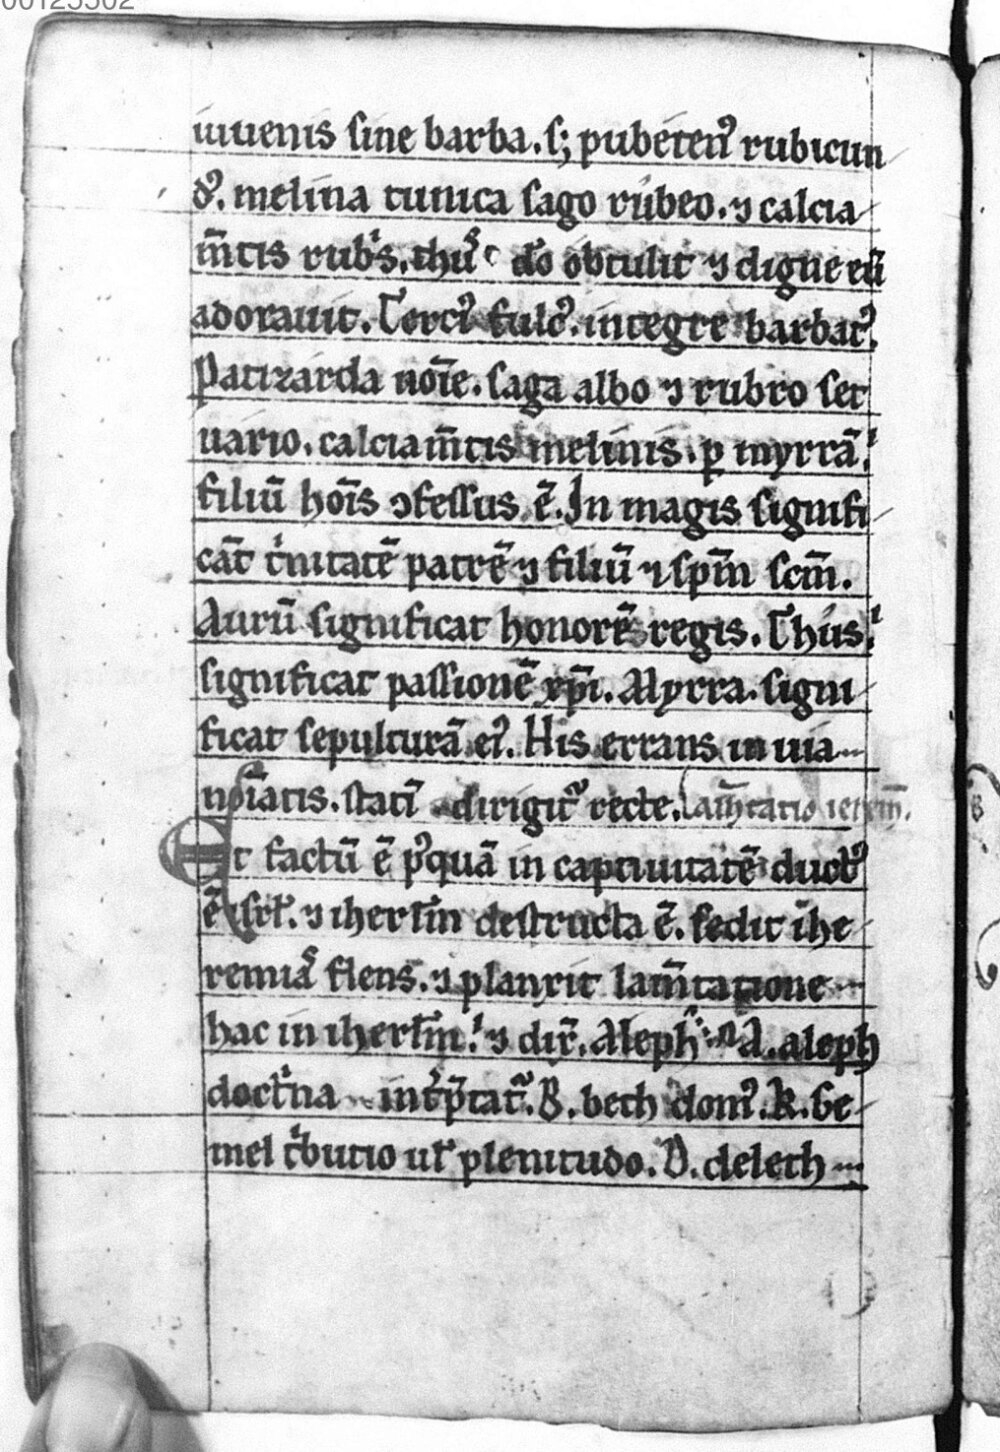 00125302
iuuenis sine barba. s; pubeten⁹ rubicun
d⁹. melina tunica sago rubeo. ⁊ calcia
m̄tis rubͥs. thuˢ dō obtulit ⁊ digne eū
adorauit. Terciꝰ fulcꝰ. integre barbatꝰ.
Patizarda noīe. saga albo ⁊ rubro ser
uario. calciam̄tis melinis. ꝑ myrrā.
filiū hoīs ꝯfessus ē. In magis signifi
cāt tͥnitatē patrē ⁊ filiū ⁊ spm̄ scm̄.
Aurū significat honorē regis. Thus.
significat passionē xp̄i. Myrra. signi
ficat sepulturā eiꝰ. His errans in uia
statī dirigit᷑ recte. Lam̄tatio
Et factū ē pꝰquā in captiuitatē ductꝰ
ē isrł. ⁊ iherłm destructa ē. sedit ihe
remiaˢ flens. ⁊ planxit lam̄tatione
hac in iherłm. ⁊ dix̄. Aleph A. aleph
doctͥna int̉p̄tat᷑. B. beth domꝰ. K. Ge
mel tͥbutio uł plenitudo. D. deleth